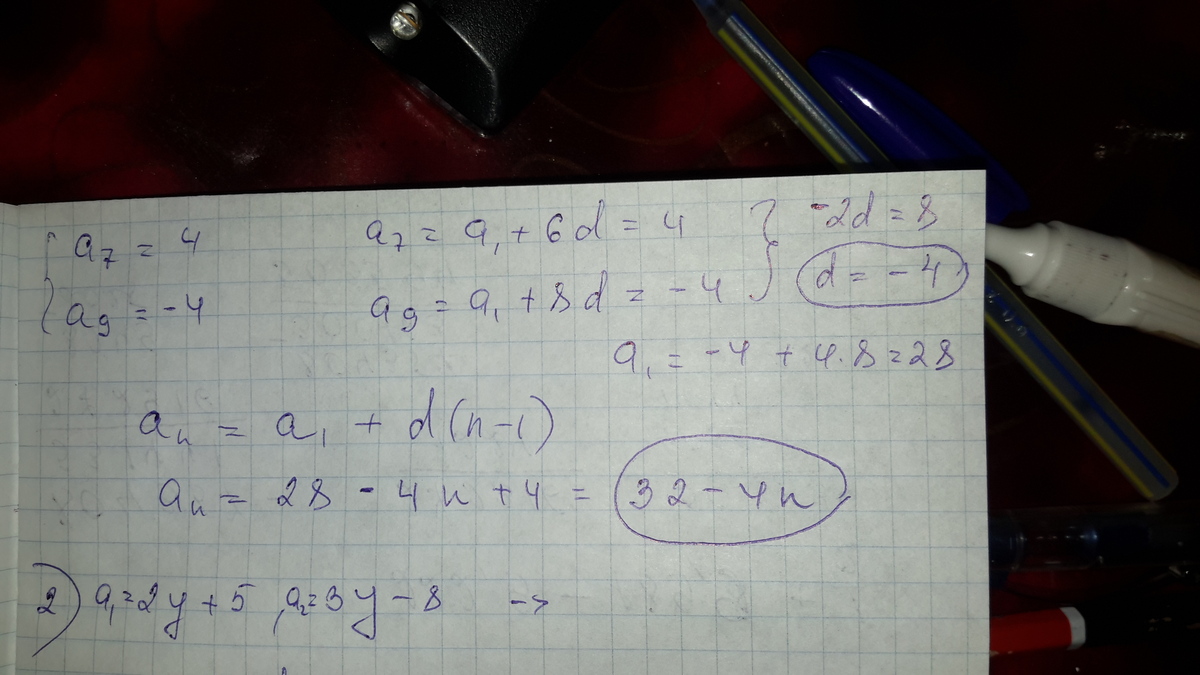 a₇ = 4   a₇ = a₁ + 6d = 4   } -2d = 8
a₉ = -4   a₉ = a₁ + 8d = -4   d = -4
a₁ = -4 + 4·8 = 28
aₙ = a₁ + d(n-1)
aₙ = 28 - 4n + 4 = 32 - 4n
2) a₁ = 2y + 5, a₂ = 3y - 8 ->